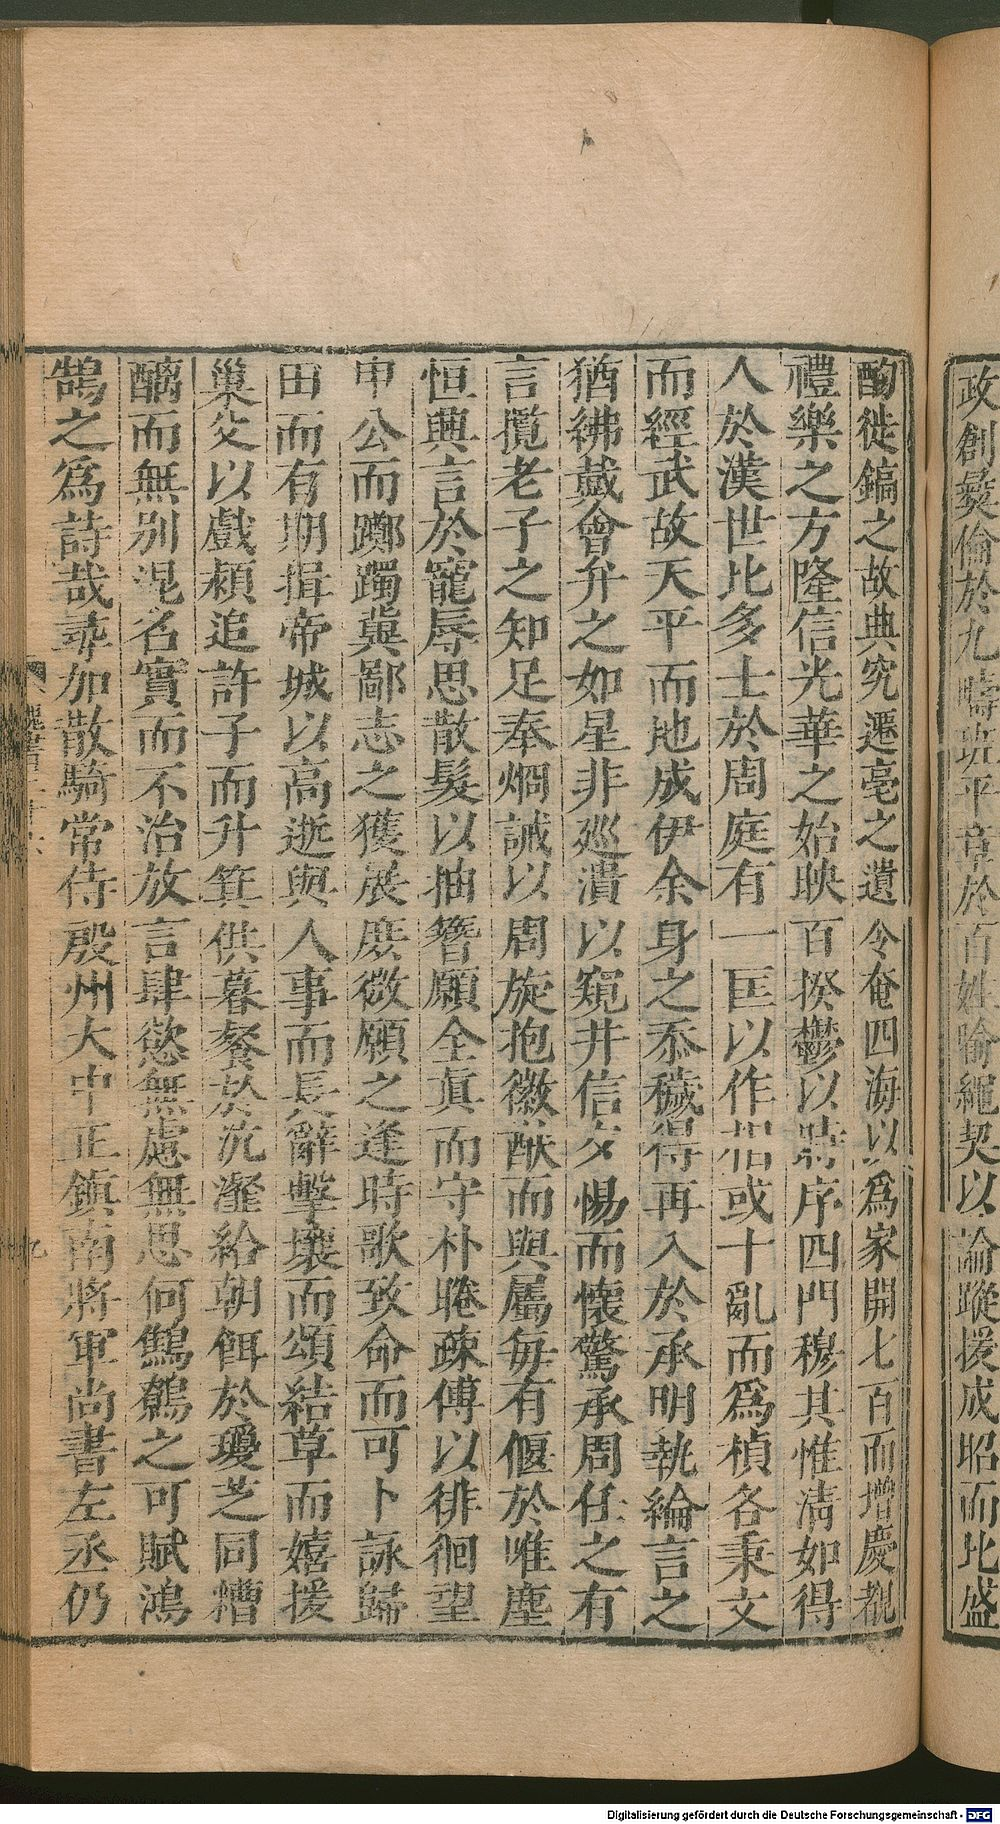 政創彝倫於九疇班平章於百姓喻繩契以論蹤援成昭而比盛
酌徙鎬之故典究遷亳之遺令奄四海以爲家開七百而增慶覩
禮樂之方隆信光華之始映百揆鬱以時序四門穆其惟清如得
人於漢世比多士於周庭有一匡以作相或十亂而爲楨各秉文
而經武故天平而地成伊余身之忝穢得再入於承明執綸言之
猶彿戴會弁之如星非巡潰以窺井信夕惕而懷驚承周任之有
言攬老子之知足奉炯誡以周旋抱徽猷而與屬每有偃於唯塵
恒興言於寵辱思散髮以抽簪願全眞而守朴睠疎傅以徘徊望
申公而躑躅冀鄙志之獲展庶微願之逢時歌致命而可卜詠歸
田而有期揖帝城以高逝與人事而長辭擊壤而頌結草而嬉援
巢父以戲潁追許子而升箕供暮餐於沆瀣給朝餌於瓊芝同糟
醨而無别混名實而不治放言肆慾無慮無思何鷦鷯之可賦鴻
鵠之爲詩哉尋加散騎常侍殷州大中正鎮南將軍尚書左丞仍
九
Digitalisierung gefördert durch die Deutsche Forschungsgemeinschaft - DFG